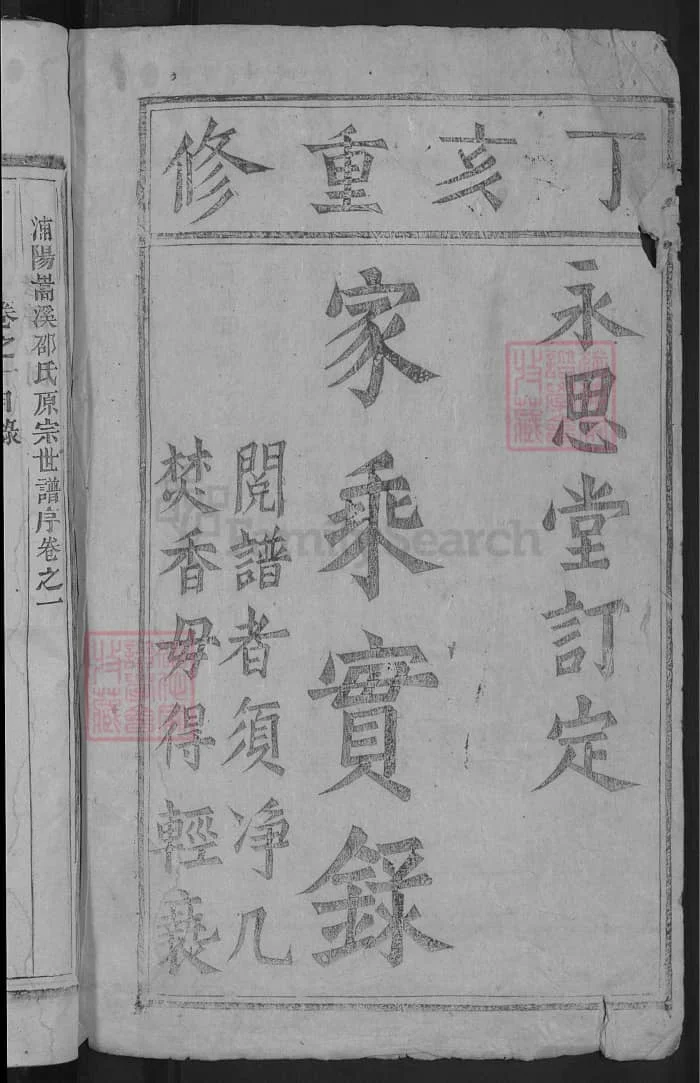 丁亥重修
永思堂訂定
家乘實錄
閱譜者須净几
焚香毋得輕褻
浦陽嵩溪邵氏原宗世譜序卷之一
卷之一目錄
FamilySearch